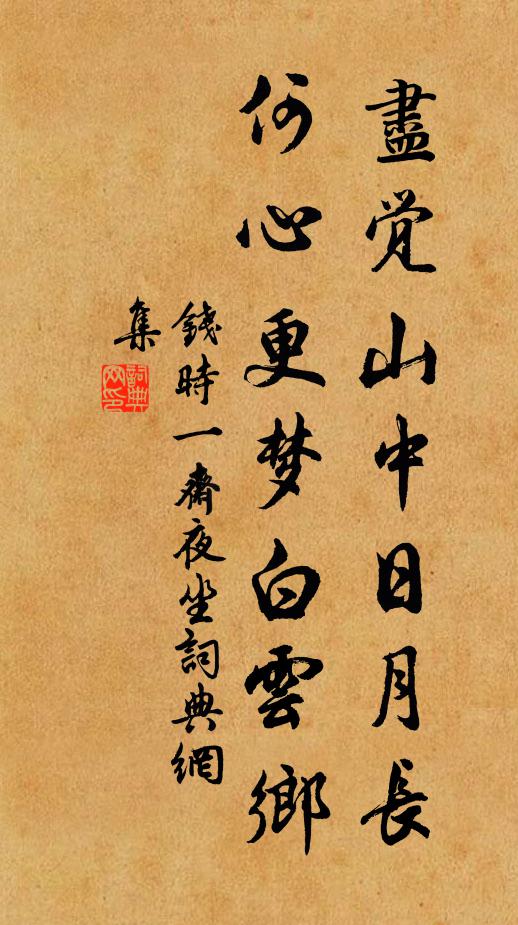 盡覺山中日月長
何心更梦白雲鄉
錢時一齋夜坐詞典網
集
詞典
网印